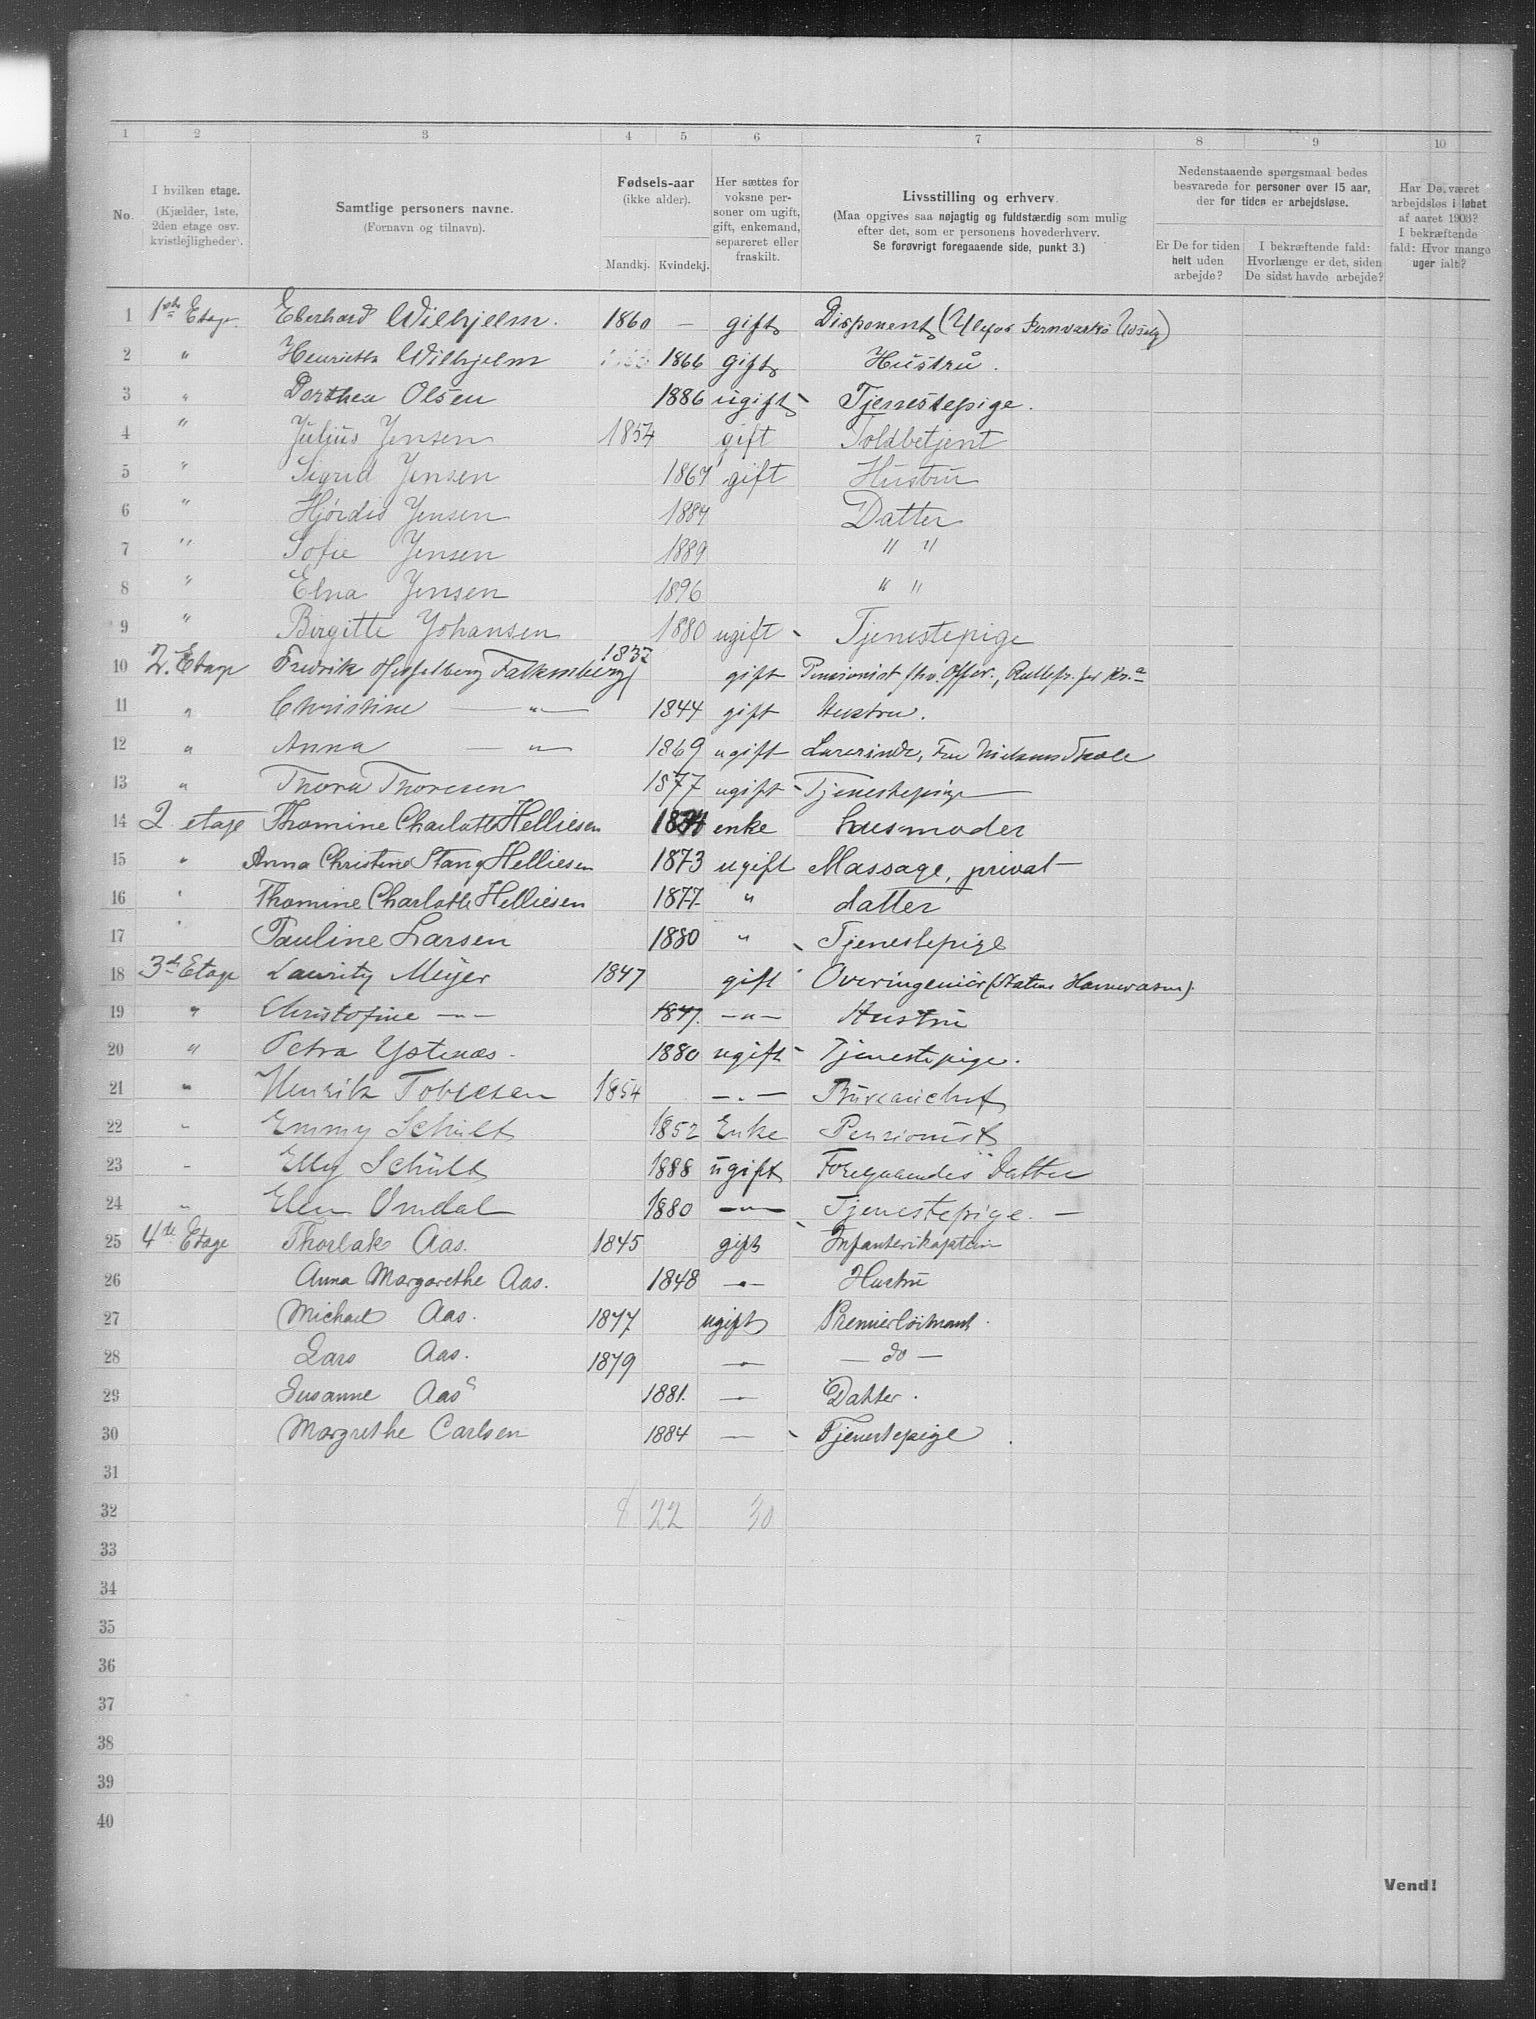 1 2 3 4 5 6 7 8 9 10
No.
I hvilken etage. (Kjælder, 1ste, 2den etage osv. kvistlejligheder).
Samtlige personers navne. (Fornavn og tilnavn).
Fødsels-aar (ikke alder). Mandkj. Kvindekj.
Her sættes for voksne personer om ugift, gift, enkemand, separeret eller fraskilt.
Livsstilling og erhverv. (Maa opgives saa nøjagtig og fuldstændig som mulig efter det, som er personens hovederhverv. Se forøvrigt foregaaende side, punkt 3.)
Nedenstaaende spørgsmaal bedes besvarede for personer over 15 aar, der for tiden er arbejdsløse.
Er De for tiden helt uden arbejde?
I bekræftende fald: Hvorlænge er det, siden De sidst havde arbejde?
Har De været arbejdsløs i løbet af aaret 1903? I bekræftende fald: Hvor mange uger ialt?
1 1ste Etage Eberhard Wilhjelm. 1860 — gift Disponent (Ulefos Jernværks Udsalg)
2 " Henriette Wilhjelm 1866 gift Hustru.
3 " Dorthea Olsen 1886 ugift Tjenestepige.
4 " Julius Jensen 1854 gift Toldbetjent
5 " Sigrid Jensen 1867 gift Hustru
6 " Hjørdis Jensen 1884 Datter
7 " Sofie Jensen 1889 " "
8 " Elna Jensen 1896 " "
9 " Birgitte Johansen 1880 ugift Tjenestepige
10 2. Etage Fredrik Hesselberg Falkenberg 1832 gift Pensionist
11 " Christine — " — 1844 gift Hustru.
12 " Anna — " — 1869 ugift Lærerinde, Fru Nielsens Skole
13 " Thora Thoresen 1877 ugift Tjenestepige
14 2 etage Thomine Charlotte Helliesen enke husmoder
15 " Anna Christine Stang Helliesen 1873 ugift Massage, privat
16 " Thomine Charlotte Helliesen 1877 " datter
17 " Pauline Larsen 1880 " Tjenestepige
18 3de Etage Lauritz Meijer 1847 gift Overingeniør (Statens Havnevæsen).
19 " Christofine — " — 1847. — " — Hustru
20 " Petra Ystenæs. 1880 ugift Tjenestepige.
21 " Henrik Tobiesen 1854 — " — Bureauchef
22 " Emmy Schult 1852 Enke Pensionist
23 " Elly Schult 1888 ugift Foregaaendes Datter
24 " Elen Omdal 1880 — " — Tjenestepige. —
25 4de Etage Thorlak Aas. 1845 gift Infanterikaptein
26 Anna Margarethe Aas. 1848 — " — Hustru
27 Michael Aas. 1877 ugift Premierløitnant.
28 Lars Aas. 1879 — " — — do —
29 Susanne Aas 1881. — " — Datter.
30 Margrethe Carlsen 1884 — Tjenestepige.
31
32 8 22 30
33
34
35
36
37
38
39
40
Vend!